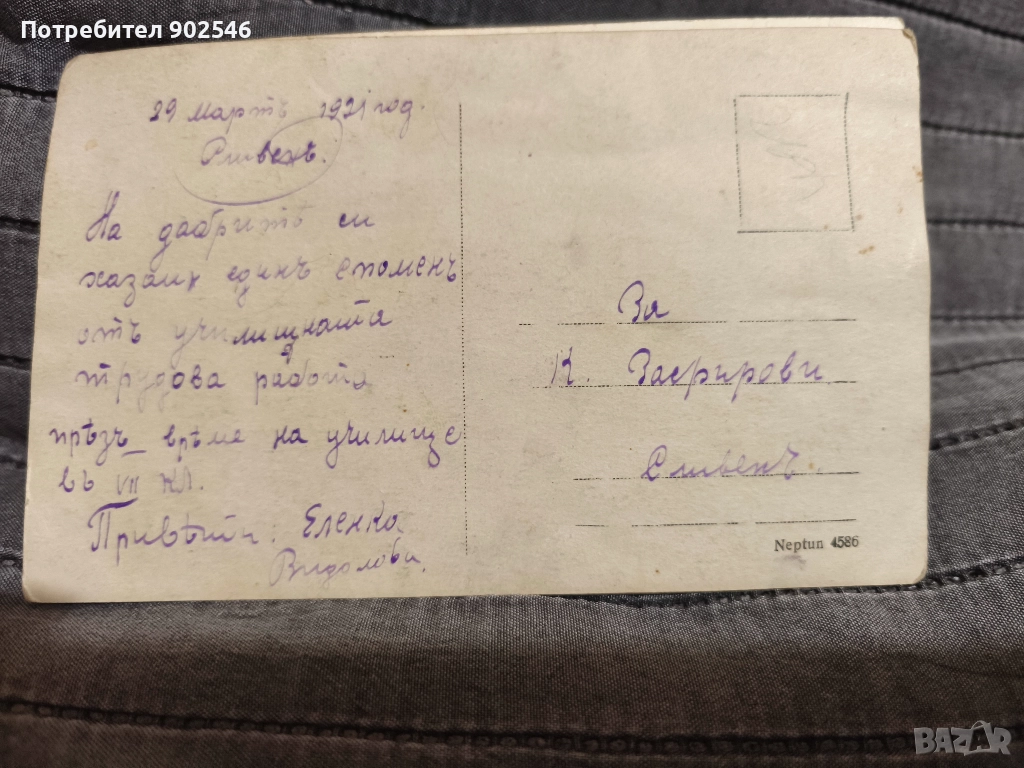 Потребител 902546
29 мартъ 1921 год.
Сливенъ.
На добритѣ си
хазаи единъ споменъ
отъ училищната
трудова работа
прѣзъ врѣме на училище
въ VII кл.
Привѣти: Еленка
Видолови.
За
К. Зафирови
Сливенъ.
Neptun 4586
BAZAR